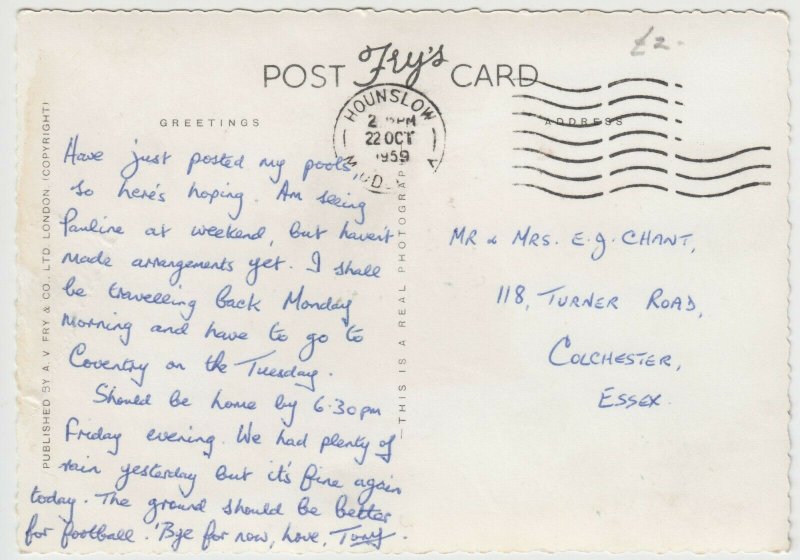 £2-
POST Fry's CARD
HOUNSLOW
2 PM
22 OCT
1959
GREETINGS
ADDRESS
Have just posted my pools
so here's hoping. Am seeing
Pauline at weekend, but haven't
made arrangements yet. I shall
be travelling back Monday
morning and have to go to
Coventry on the Tuesday.
Should be home by 6.30pm
Friday evening. We had plenty of
rain yesterday but it's fine again
today. The ground should be better
for football. 'Bye for now, love, Tony.
MR & MRS. E.J. CHANT,
118, TURNER ROAD,
COLCHESTER,
ESSEX.
PUBLISHED BY A. V. FRY & CO., LTD. LONDON (COPYRIGHT)
—THIS IS A REAL PHOTOGRAP